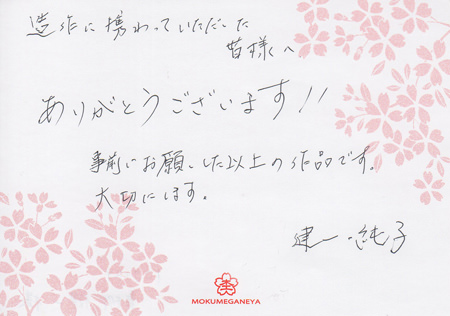 造作に携わっていただいた
皆様へ
ありがとうございます!!
事前にお願いした以上の作品です。
大切にします。
建一・純子
MOKUMEGANEYA